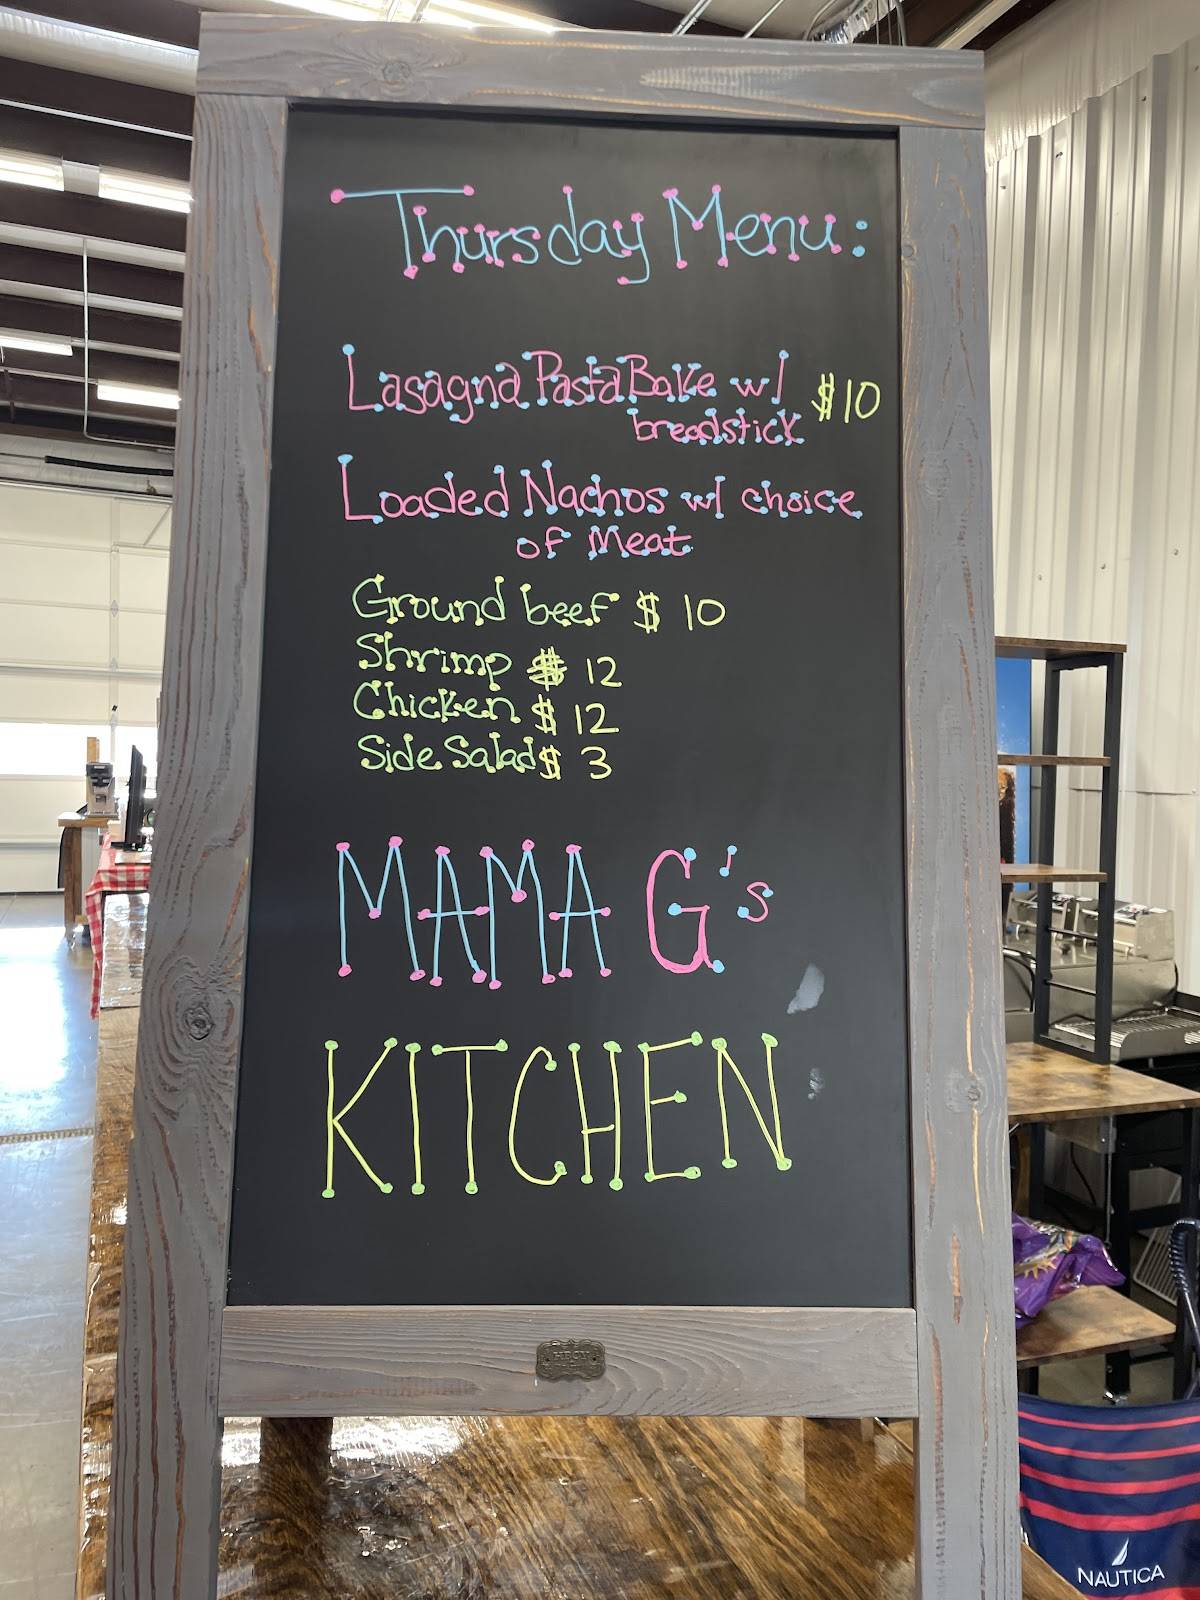 Thursday Menu:
Lasagna Pasta Bake w/ $10
breadstick
Loaded Nachos w/ choice
of Meat
Ground beef $ 10
Shrimp $ 12
Chicken $ 12
Side Salad $ 3
MAMA G's
KITCHEN
HBCY
NAUTICA